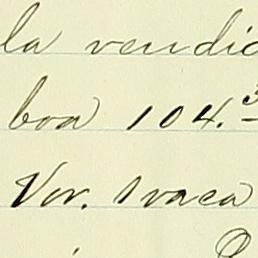 la vendic
boa 104.
Vor. 1 vaca